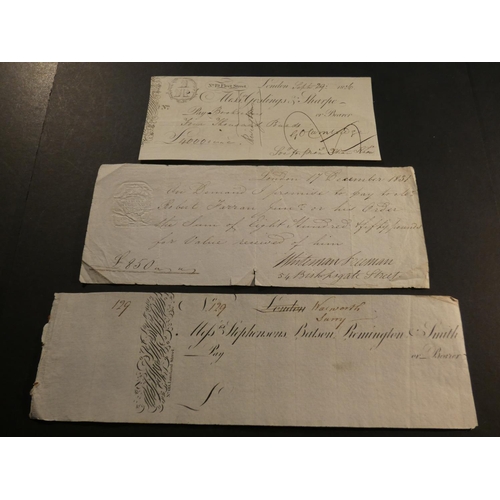 London Sept 29
Mess. Goslings & Sharpe
Pay
or Bearer
Four Thousand Pounds
£4000
London 17 December
On Demand I promise to pay to Mr
Robert Farran Junr. or his Order
the Sum of Eight Hundred & fifty pounds
for Value received of him
£850
Freeman
34 Bishopsgate Street
139 No. 139 London Walworth
Surry
Messrs. Stephensons Batson, Remington & Smith
Pay
or Bearer
£